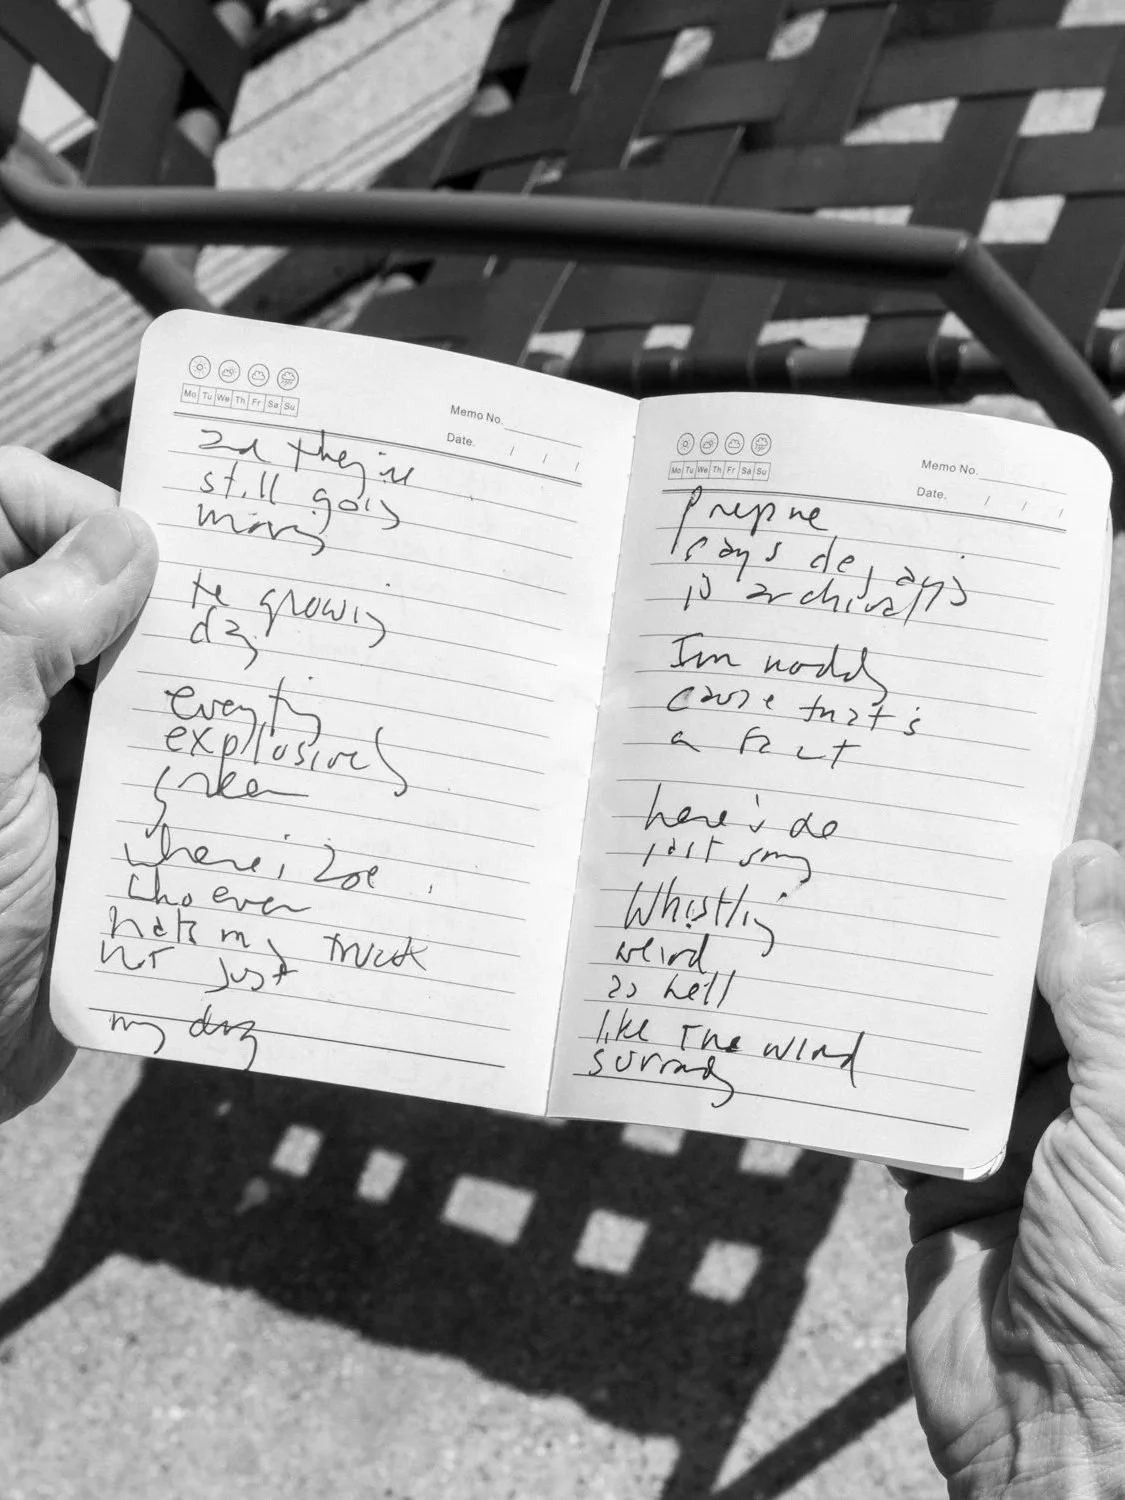 Mo Tu We Th Fr Sa Su
Memo No.
Date. / /
and they're
still going
the growing
day
everything
explosively
green
where is Zoe
whoever
hats my truck
not just
my dog
Mo Tu We Th Fr Sa Su
Memo No.
Date. / /
says
is archival
I'm
cause that's
a fact
here's
just
Whistling
weird
as hell
like The wind